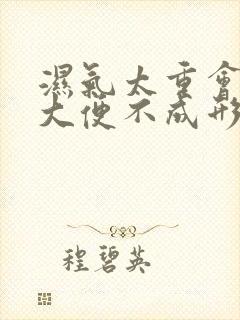 濕氣太重會
大便不成形
程碧英